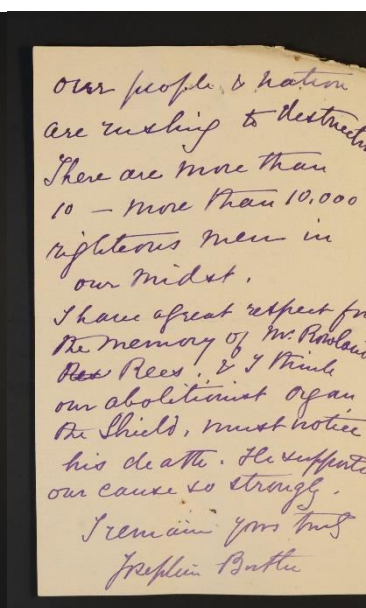 our people, & nation
are rushing to destruct
There are more than
10 — more than 10,000
righteous men in
our midst.
I have a great respect for
the memory of Mr. Rowland
Rees, & I think
our abolitionist organ,
the Shield, must notice
his death. He supporte
our cause so strongly.
I remain yours truly
Josephine Butler